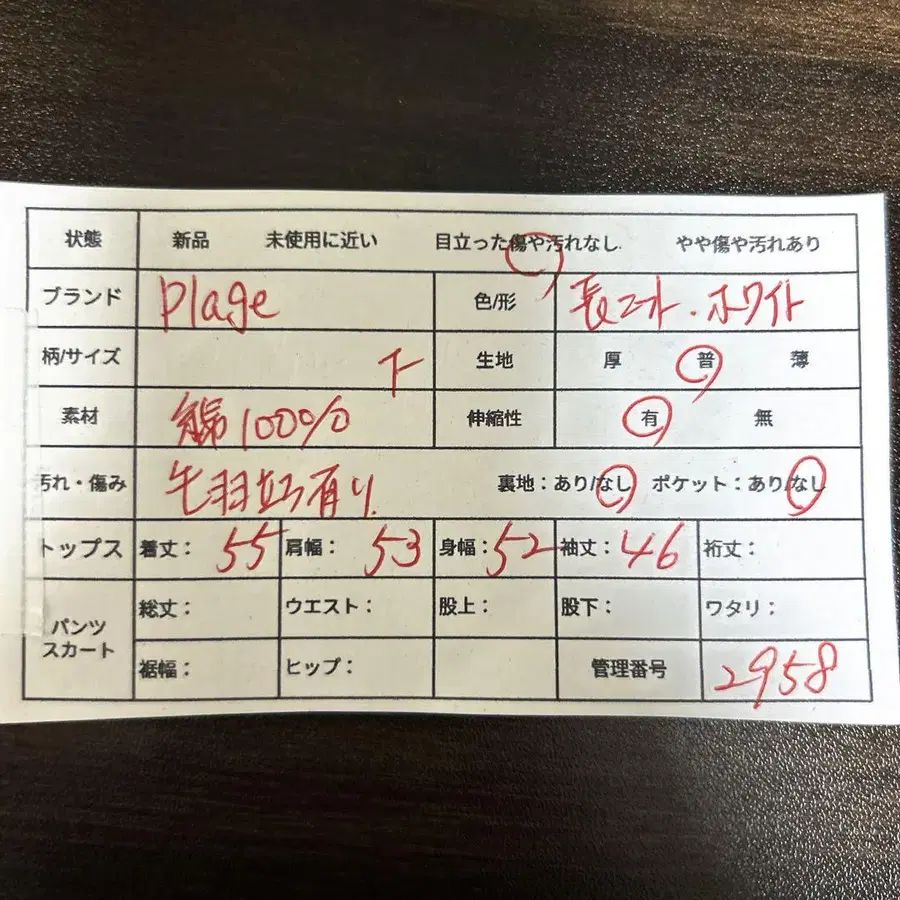 状態 新品 未使用に近い 目立った傷や汚れなし やや傷や汚れあり
ブランド Plage 色/形 長ニット・ホワイト
柄/サイズ 下 生地 厚 普 薄
素材 綿100% 伸縮性 有 無
汚れ・傷み 毛羽立ち有り 裏地：あり/なし ポケット：あり/なし
トップス 着丈：55 肩幅：53 身幅：52 袖丈：46 裄丈：
パンツ スカート 総丈： ウエスト： 股上： 股下： ワタリ：
裾幅： ヒップ： 管理番号 2958